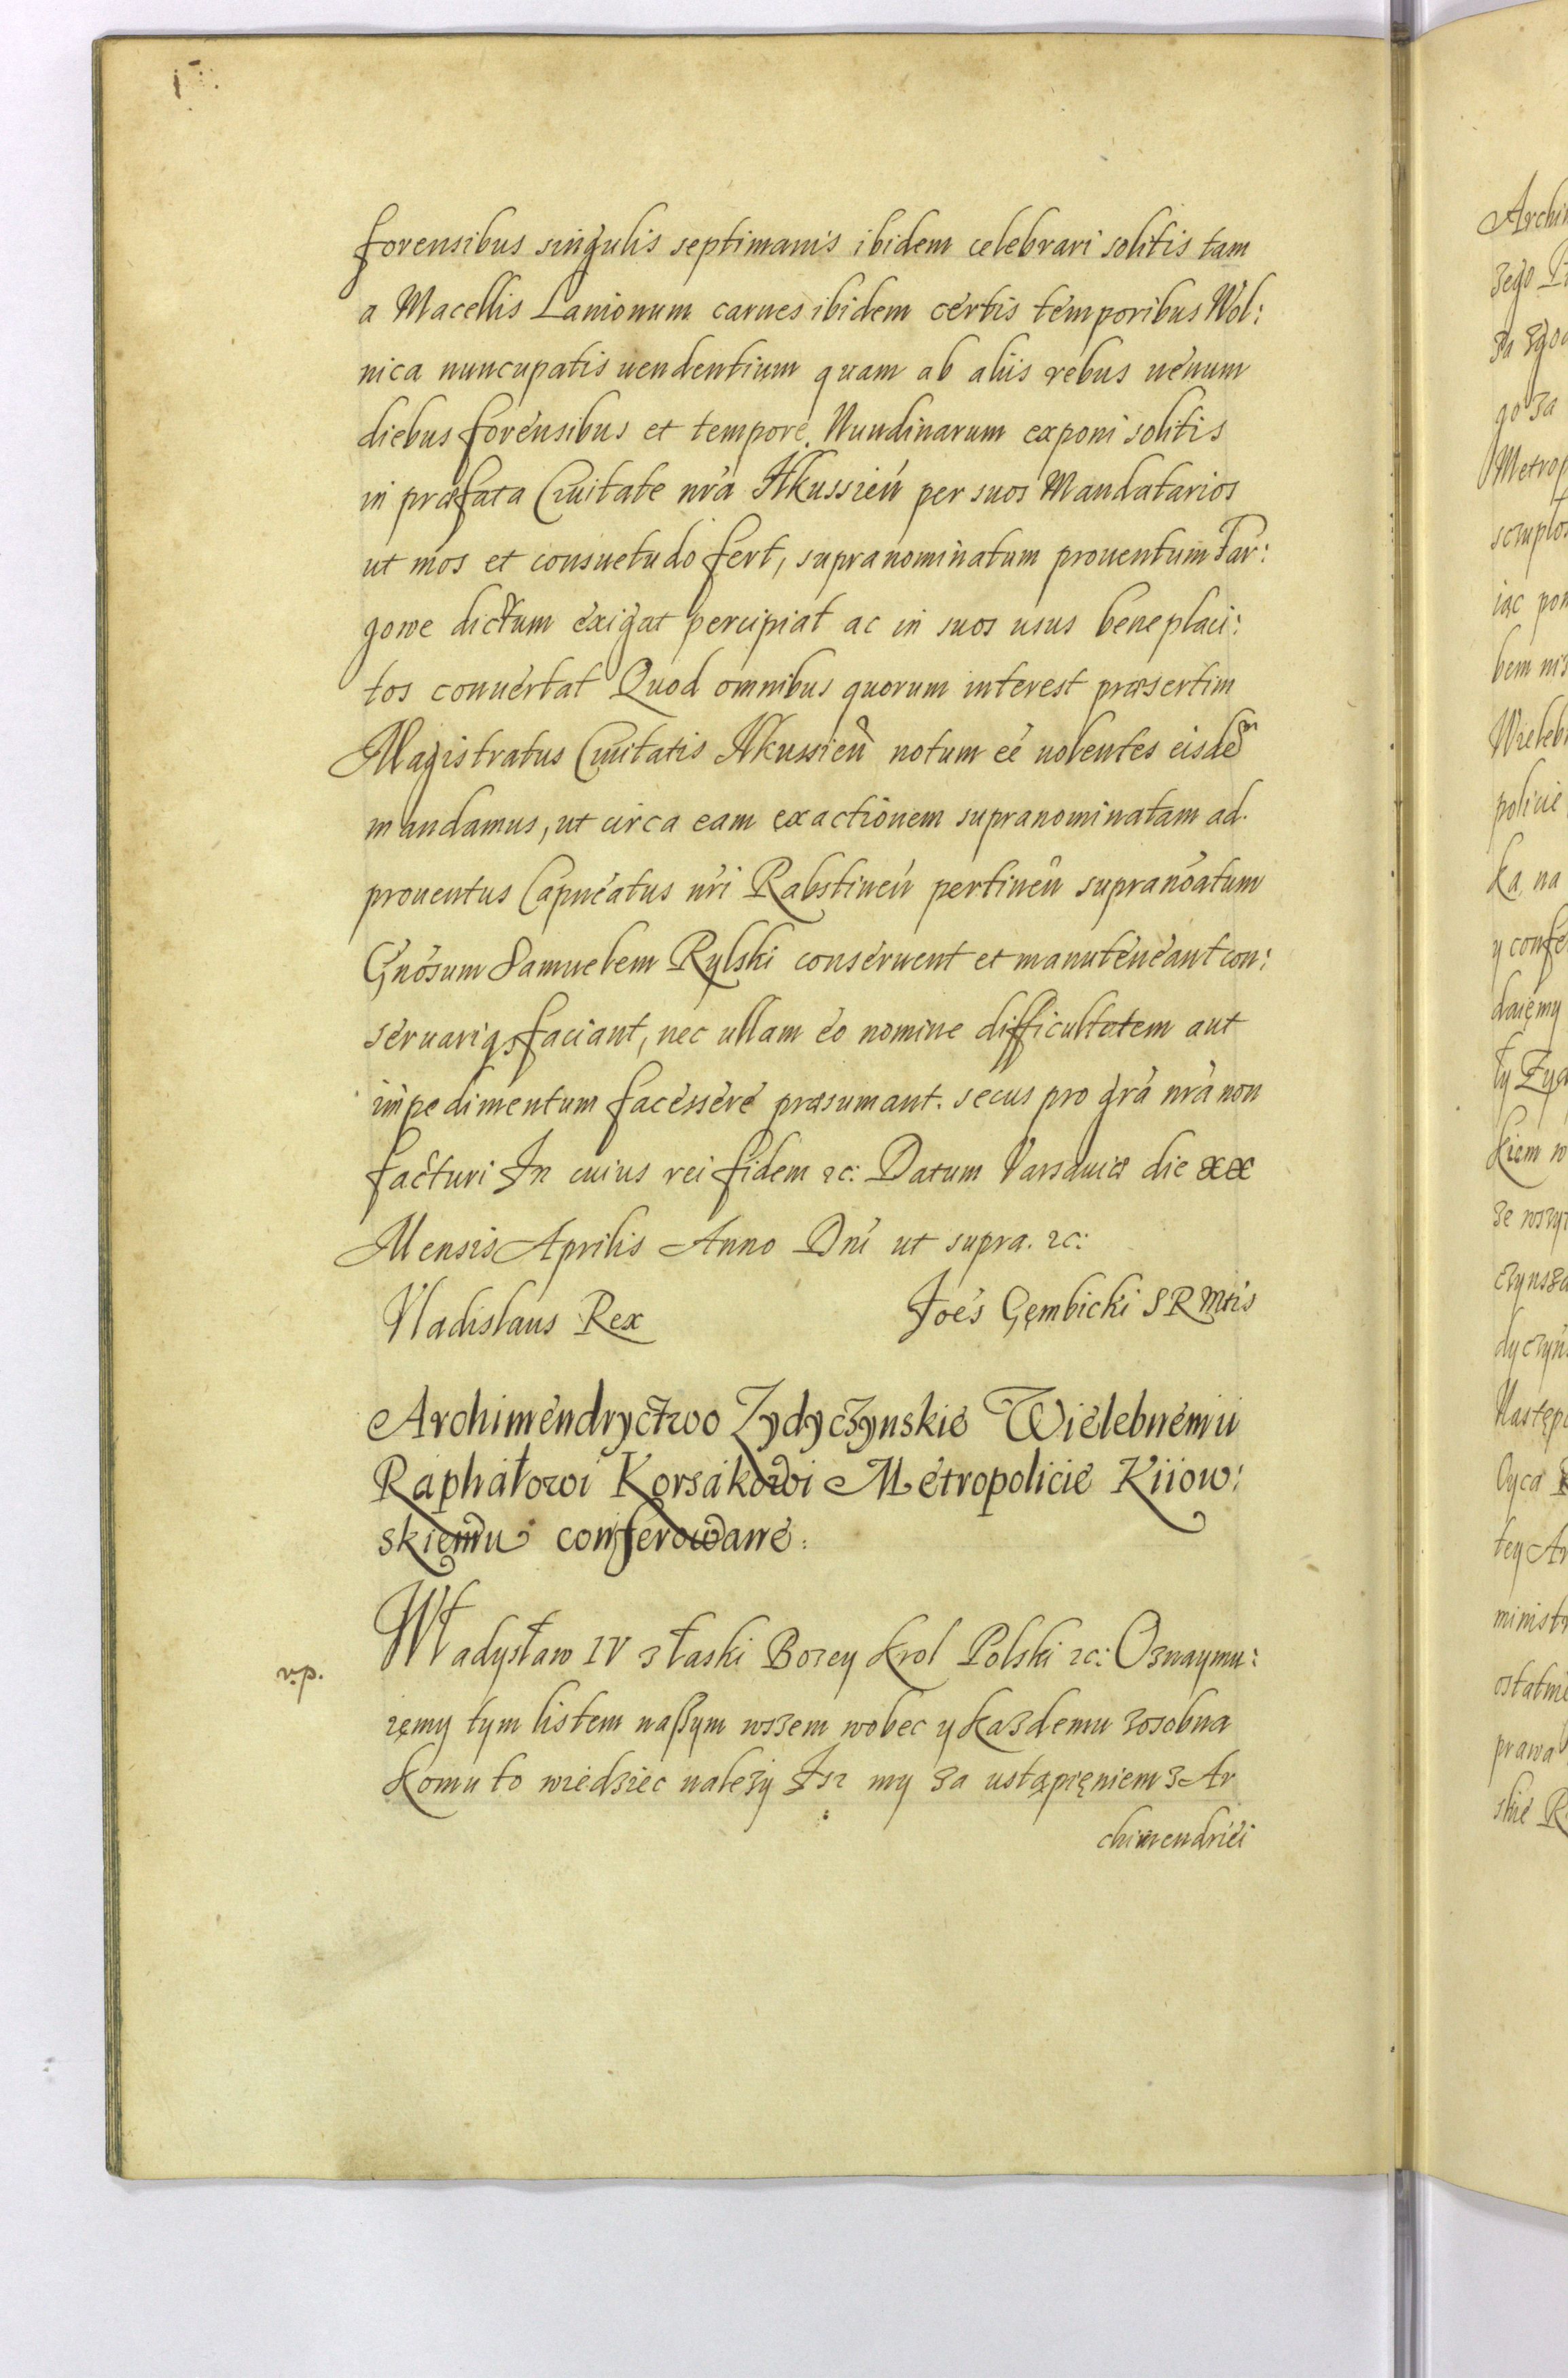 forensibus singulis septimanis ibidem celebrari solitis tam
a Macellis Lanionum carnes ibidem certis temporibus Wol:
nica nuncupatis uendentium quam ab aliis rebus uenum
diebus forensibus et tempore Nundinarum exponi solitis
in præfata Ciuitate nrã Ilkussień per suos Mandatarios
ut mos et consuetudo fert, supranominatum prouentum Tar:
gowe dictum exigat percipiat ac in suos usus beneplaci:
tos conuertat Quod omnibus quorum interest præsertim
Magistratus Ciuitatis Ilkussień notum eé uolentes eisdem
mandamus, ut circa eam exactionem supranominatam ad
prouentus Capneatus nri Rabstineń pertineń supranoatum
Gnosum Samuelem Rylski conseruent et manuteneant con:
seruariq faciant, nec ullam eo nomine difficultatem aut
impedimentum facessere præsumant. secus pro gra nra non
facturi In cuius rei fidem &c: Datum Varsauiæ die XX
Mensis Aprilis Anno Dni ut supra. &c:
Vladislaus Rex Joes Gęmbicki S R Mtis
Archimendryctwo Zydyczynskie Wielebnemu
Raphałowi Korsakowi Metropolicie Kiiow:
skiemu conferowane.
v.p.
Władysław IV z łaski Bozey Krol Polski &c: Oznaymu:
ięmy tym listem naszym wszem wobec y kazdemu zosobna
komu to wiedziec nalezy Isz my za ustąpięniem z Ar
chimendriei